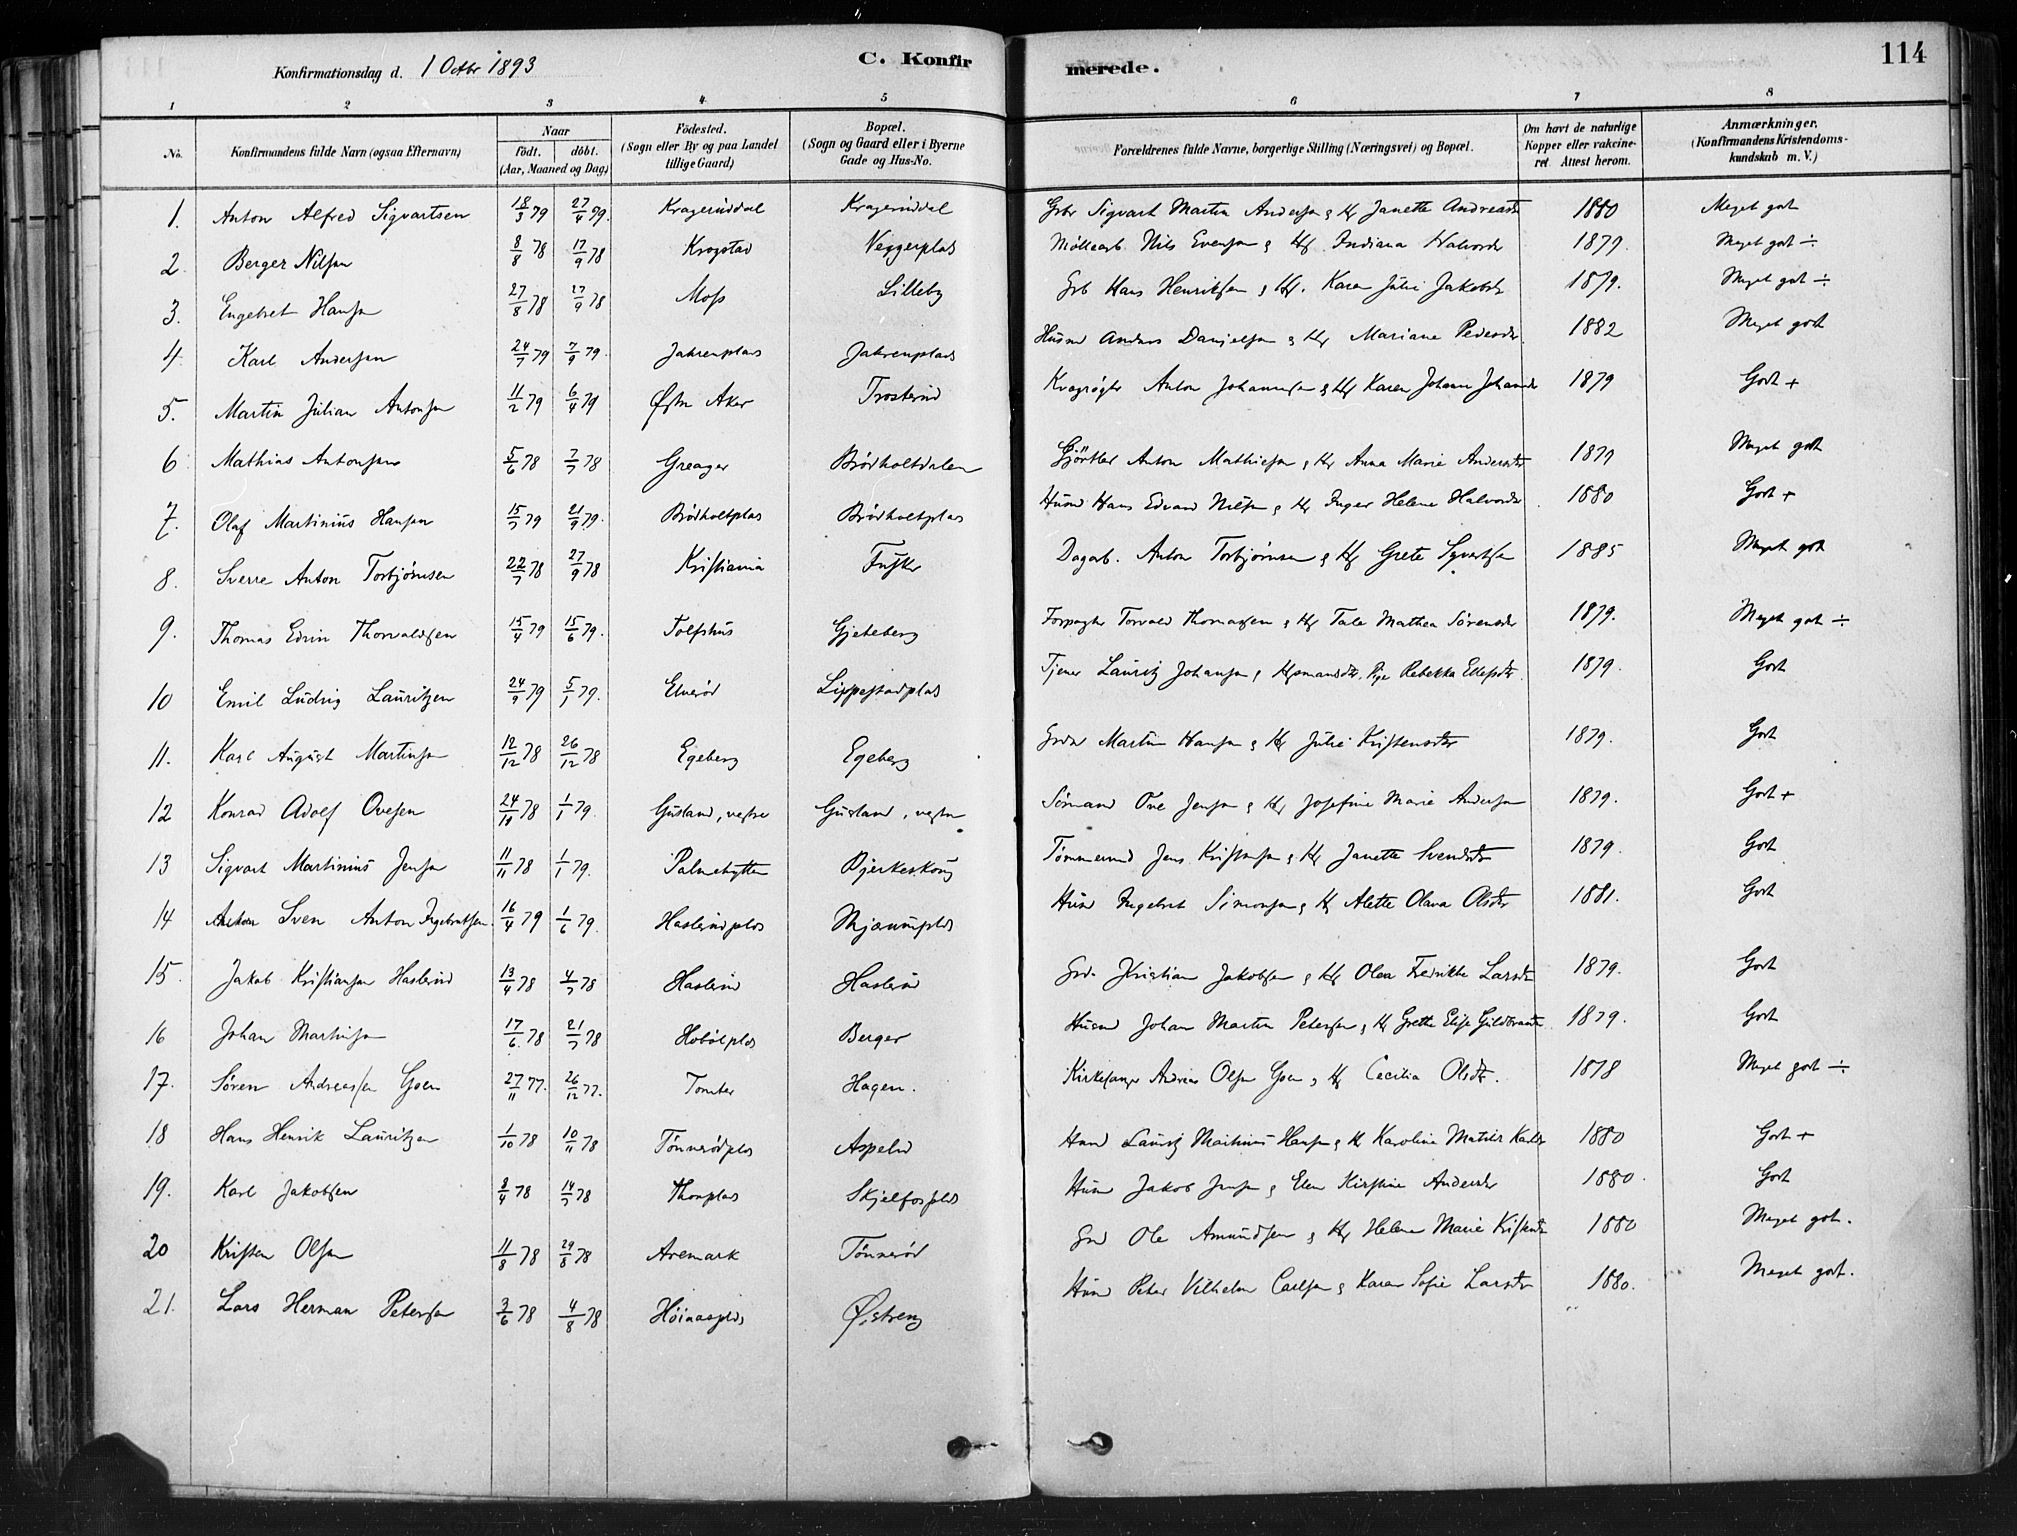 Konfirmationsdag d. 1 Octbr 1893 C. Konfirmerede. 114
1 2 3 4 5 6 7 8
No. Konfirmandens fulde Navn (ogsaa Efternavn) Naar født. døbt. (Aar, Maaned og Dag) Födested. (Sogn eller By og paa Landet tillige Gaard) Bopæl. (Sogn og Gaard eller i Byerne Gade og Hus-No. Forældrenes fulde Navne, borgerlige Stilling (Næringsvei) og Bopæl. Om havt de naturlige Kopper eller vakcineret. Attest herom. Anmærkninger. (Konfirmandens Kristendomskundskab m. V.)
1. Anton Alfred Sigvartsen 18/3 79 27/4 79. Krageruddal Krageruddal Sigvart Martin Andersen & H Janette Andreasdtr 1880 Meget godt
2 Berger Nilsen 8/8 78 17/9 78 Krogstad Veggerplads Møllearb Nils Evensen & H Indiana Halvorsdr 1879. Meget godt ÷
3. Engebret Hansen 27/8 78 27/9 78 Moss Lilleby Hans Henriksen & H. Karen Julie Jakobsdr 1879. Meget godt ÷
4 Karl Andersen 24/7 79 7/9 79. Jahrenplads Jahrenplads Husm Anders Danjelsen & H Mariane Pedersdr 1882 Meget godt
5. Martin Julian Antonsen 11/2 79 6/4 79 Østre Aker Trosterud Anton Johannesen & H Karen 1879 Godt +
6 Mathias Antonsen 5/6 78 7/7 78 Greager Brødholtdalen Gjørtler Anton Mathiesen & H Anna Marie Andersdtr 1879 Meget godt
7. Olaf Martinius Hansen 15/7 79 21/9 79. Brødholtplads Brødholtplads Husm Hans Edvard Nilsen & H Inger Helene Halvorsdr 1880 Godt +
8. Sverre Anton Torbjørnsen 22/7 78 27/9 78 Kristiania Fusker Dagarb. Anton Torbjørnsen & H Grete 1885 Meget godt
9. Thomas Edvin Thorvaldsen 15/4 79 15/6 79. Tofshus Gjeteberg Forpagter Torvald Thomassen & H Tale Mathea Sørensdr 1879. Meget godt ÷
10 Emil Ludvig Lauritzen 24/9 79 79. Elverød Lippestadplads Tjener Lauritz Johansen & Pige Rebekka 1879. Godt
11. Karl August Martinsen 12/12 78 26/12 78 Egeberg Egeberg Martin Hansen & H Julie Kristensdtr 1879. Godt
12 Konrad Adolf Ovesen 24/11 78 1/1 79. Gusland, vestre Gusland, vestre Ove Jensen & H Josefine Marie Andersen 1879. Godt +
13 Sigvart Martinius Jensen 11/11 78 1/1 79. Palmehytten Bjerkeskoug Tømmermd Jens Kristiansen & H Janette Svendsdtr 1879. Godt
14 Sven Anton Ingebretsen. 16/4 79 1/6 79. Haslerudplds Mjærumplds Husm Ingebret Simonsen & H Alette Olava Olsdtr 1881. Godt
15. Jakob Kristiansen Haslerud 13/4 78 4/7 78 Haslerud Haslerud Kristian Jakobsen & H Olea Fredrikke Larsdtr 1879. Godt
16 Johan Martinsen 17/6 78 21/7 78 Hobølplds Berger Husm Johan Martin Petersen & H Grethe Elise 1879. Godt
17. Søren Andreassen Goen 27/11 77. 26/12 77. Tomter Hagen. Kirkesanger Andreas Olsen Goen & H Cecilia Olsdtr. 1878 Meget godt ÷
18 Hans Henrik Lauritzen 1/10 78 10/11 78 Tønnerødplds Aspelid Husm Lauritz Martinius Hansen & H Karoline 1880 Godt +
19. Karl Jakobsen 8/4 78 14/7 78 Thonplads Skjelfosplds Husm Jakob Jensen & Elen Kirstine Andersdr 1880. Godt
20 Kristen Olsen 11/8 78 29/8 78 Aremark Tønnerød Ole Amundsen & H Helene Marie Kristensdtr 1880 Meget godt.
21. Lars Herman Petersen 3/6 78 4/8 78 Høiaasplds Østreng Husm Peter Vilhelm Carlsen & Karen Sofie Larsdtr 1880. Meget godt.